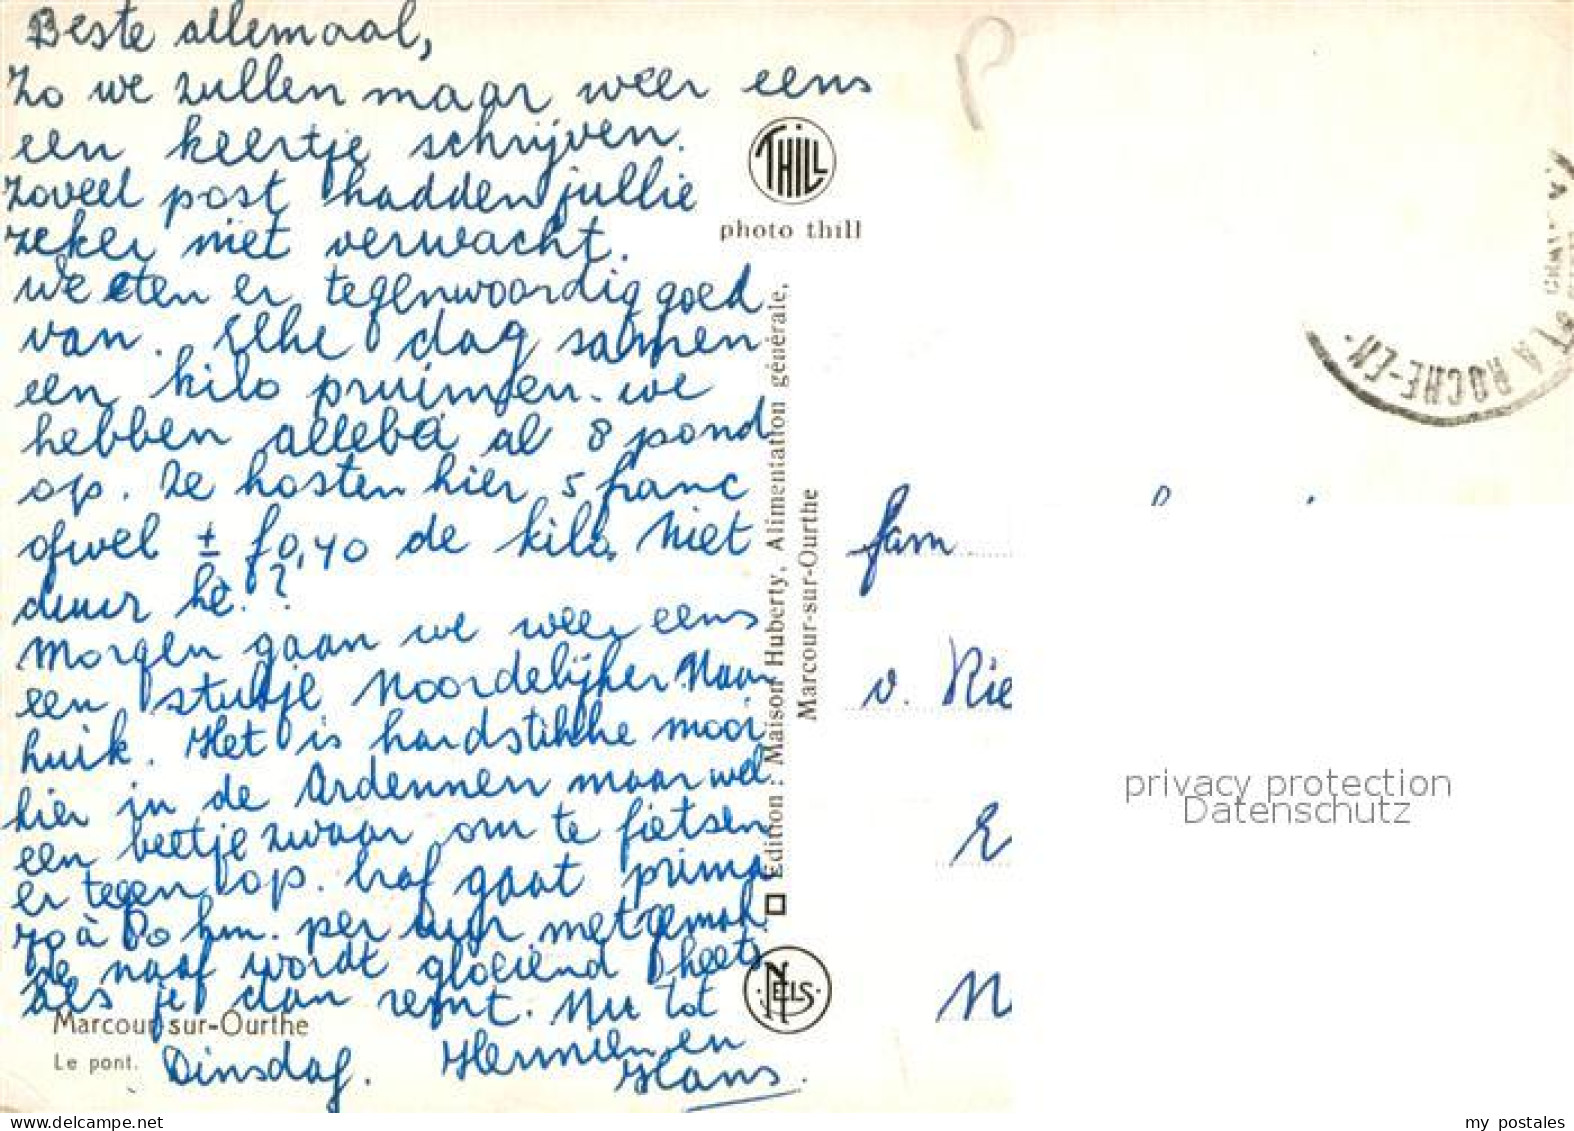 Beste allemaal,
Zo we zullen maar weer eens
een keertje schrijven.
Zoveel post hadden jullie
zeker niet verwacht.
We eten er tegenwoordig goed
van. Elke dag samen
een kilo pruimen. we
hebben allebei al 8 pond
op. Ze kosten hier 5 franc
ofwel ± f 0,40 de kilo. Niet
duur hè.?
Morgen gaan we weer eens
een stukje Noordelijker. Naar
huik. Het is hardstikke mooi
hier in de Ardennen maar wel
een beetje zwaar om te fietsen
er tegen op. Eraf gaat prima
70 à 80 km. per uur met gemak.
De naaf wordt gloeiend heet
als je dan remt. Nu tot
Dinsdag. Hermien en
Hans.
Marcour-sur-Ourthe
Le pont.
THILL
photo thill
Edition : Maison Huberty, Alimentation générale,
Marcour-sur-Ourthe
NELS
LA ROCHE-EN-
fam
v. Rie
E
N
privacy protection
Datenschutz
www.delcampe.net
my_postales